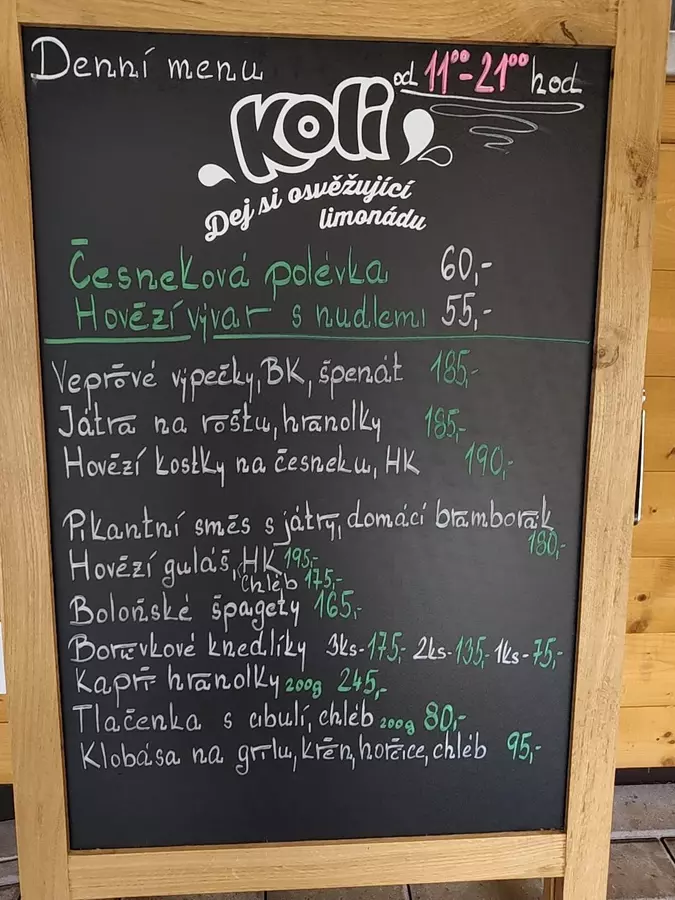 Denní menu od 11⁰⁰-21⁰⁰ hod
Koli
Dej si osvěžující
limonádu
Česneková polévka 60,-
Hovězí vývar s nudlemi 55,-
Vepřové výpečky, BK, špenát 185,-
Játra na roštu, hranolky 185,-
Hovězí kostky na česneku, HK 190,-
Pikantní směs s játry, domácí bramborák
180,-
Hovězí guláš, HK 195,-
chléb 175,-
Boloňské špagety 165,-
Borůvkové knedlíky 3ks-175,- 2ks-135,- 1ks-75,-
Kapří hranolky 200g 245,-
Tlačenka s cibulí, chléb 200g 80,-
Klobása na grilu, křen, hořčice, chléb 95,-